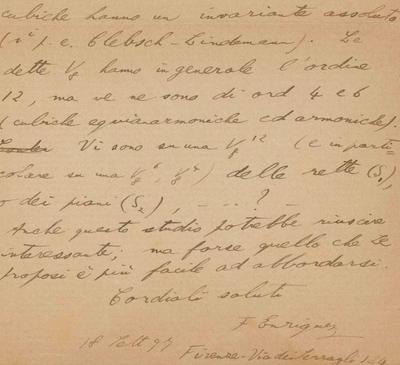 cubiche hanno un invariante assoluto
(v. p. e. Clebsch-Lindemann). Le
dette V₈ hanno in generale l'ordine
12, ma ve ne sono di ord 4 e 6
(cubiche equianarmoniche ed armoniche).
Vi sono su una V₈¹² (e in parti-
colare su una V₈⁶, V₈⁴) delle rette (S₁),
o dei piani (S₂), - ...?
Anche questo studio potrebbe riuscire
interessante; ma forse quello che Le
proposi è più facile ad abbordarsi.
Cordiali saluti
F Enriques
18 Sett 97
Firenze - Via dei Serragli